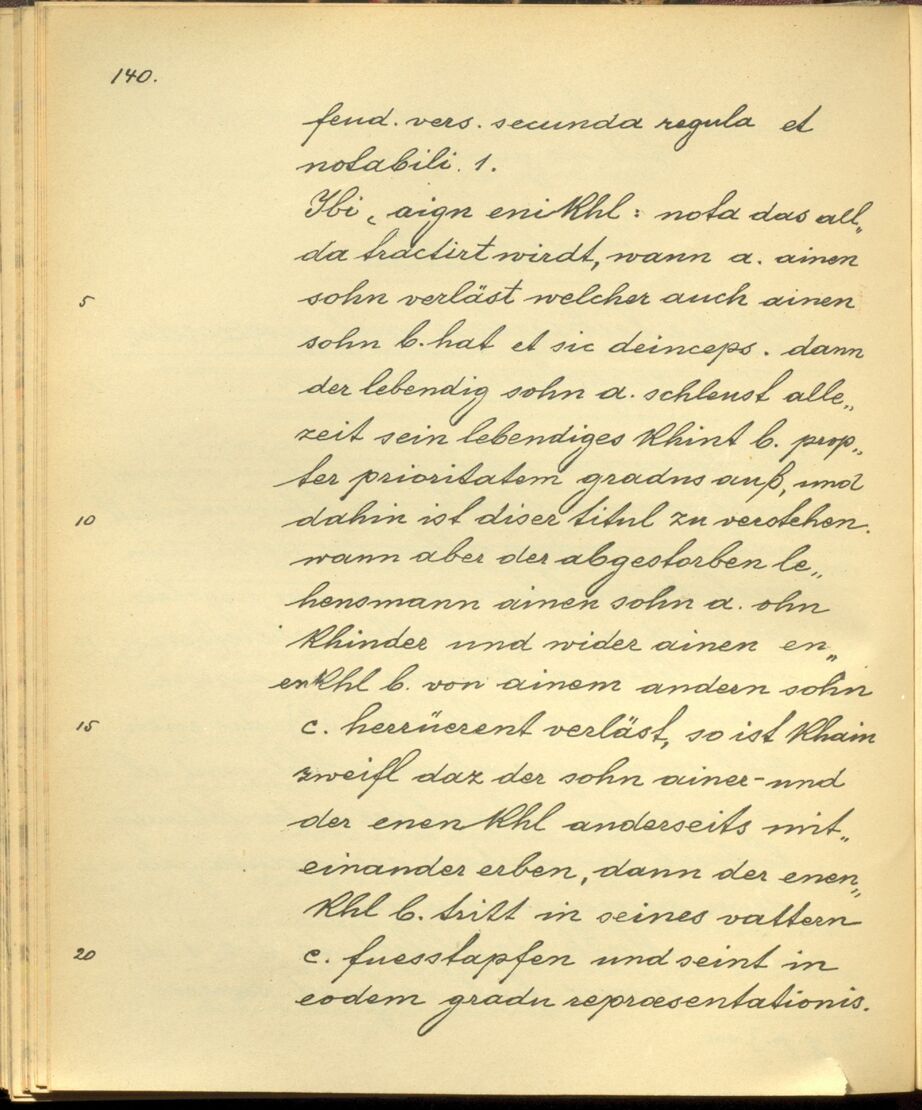 140.
feud. vers. secunda regula et
notabili. 1.
Ibi „ aign eniKhl : nota das all„
da tractirt wirdt, wann a. ainen
5 sohn verläst welcher auch ainen
sohn b. hat et sic deinceps. dann
der lebendig sohn a. schleust alle„
zeit sein lebendiges Khint b. prop„
ter prioritatem gradus auß, und
10 dahin ist diser titul zu verstehen.
wann aber der abgestorben le„
hensmann ainen sohn a. ohn
Khinder und wider ainen en„
enKhl b. von ainem andern sohn
15 c. herrüerent verläst, so ist Khain
zweifl daz der sohn ainer- und
der enenKhl anderseits mit„
einander erben, dann der enen„
Khl b. tritt in seines vattern
20 c. fuesstapfen und seint in
eodem gradu repræsentationis.